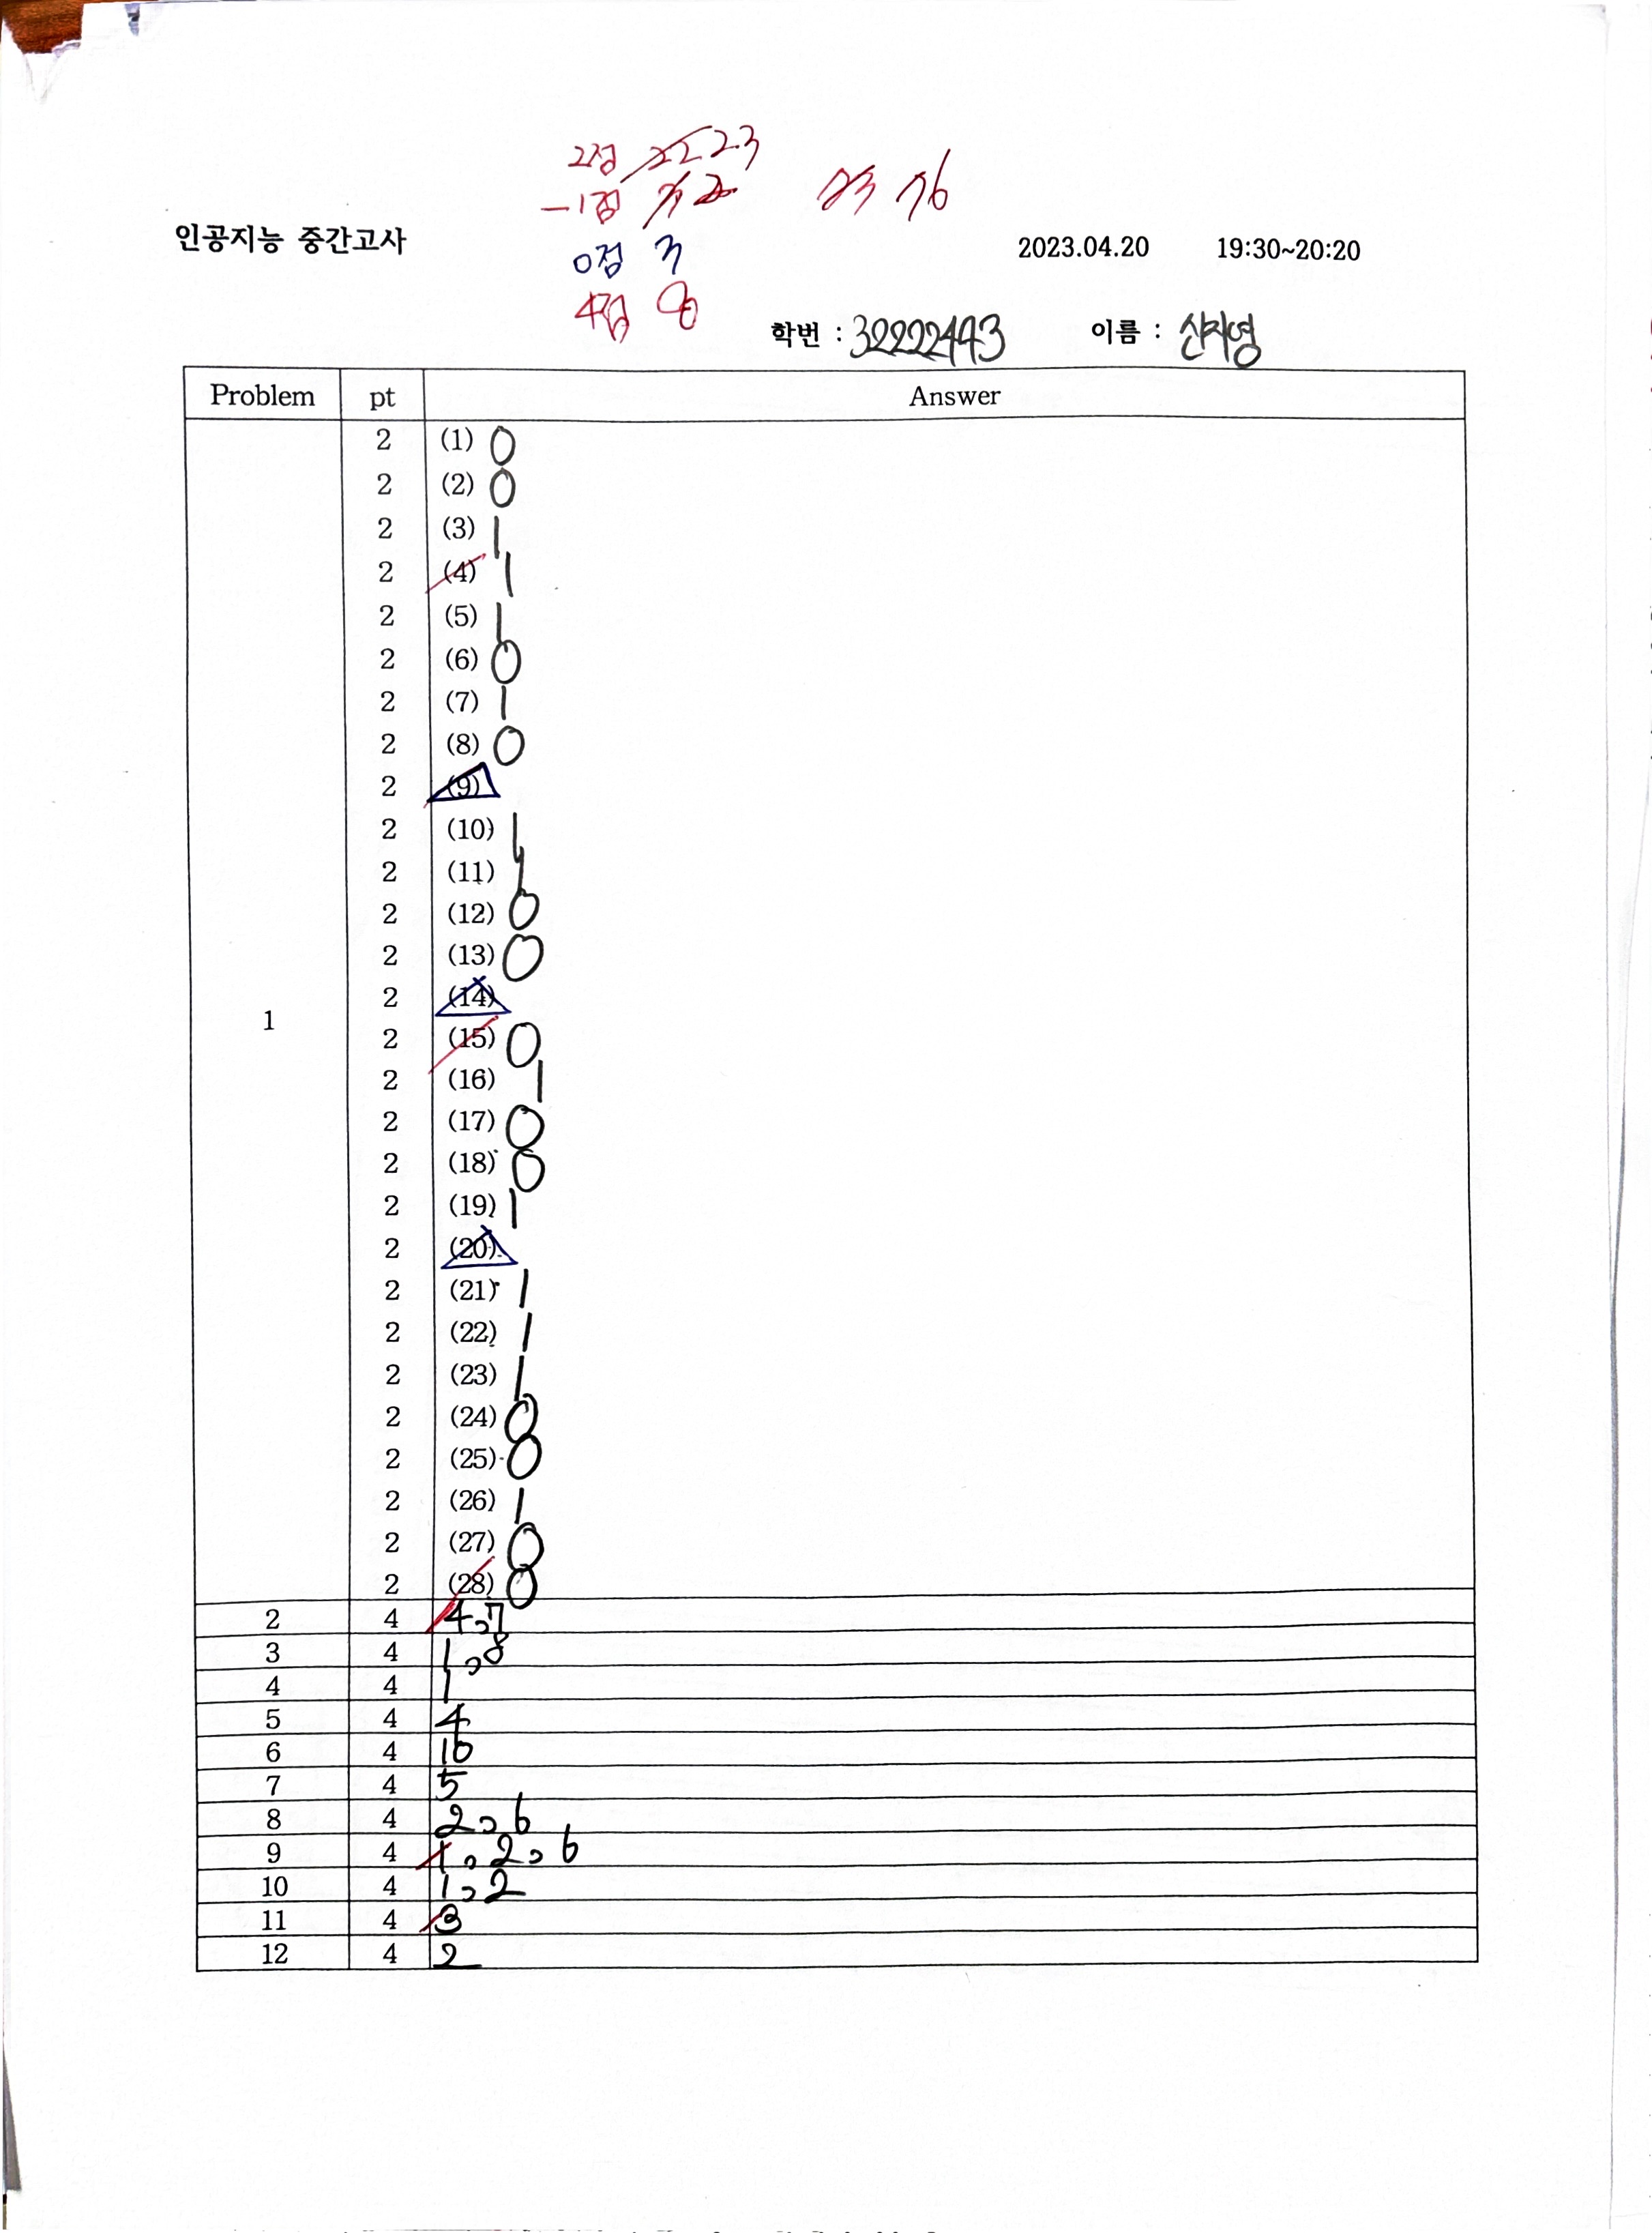 2점 22 23
-1점 2
0점 3
4점 8
76
인공지능 중간고사
2023.04.20 19:30~20:20
학번 : 32222443 이름 : 신지영
Problem pt Answer
1
2 (1) 0
2 (2) 0
2 (3) 1
2 (4) 1
2 (5) 1
2 (6) 0
2 (7) 1
2 (8) 0
2 (9)
2 (10) 1
2 (11) 1
2 (12) 0
2 (13) 0
2 (14)
2 (15) 0
2 (16) 1
2 (17) 0
2 (18) 0
2 (19) 1
2 (20)
2 (21) 1
2 (22) 1
2 (23) 1
2 (24) 0
2 (25) 0
2 (26) 1
2 (27) 0
2 (28) 0
2 4 4,7
3 4 1,8
4 4 1
5 4 4
6 4 16
7 4 5
8 4 2,6
9 4 1,2,6
10 4 1,2
11 4 3
12 4 2